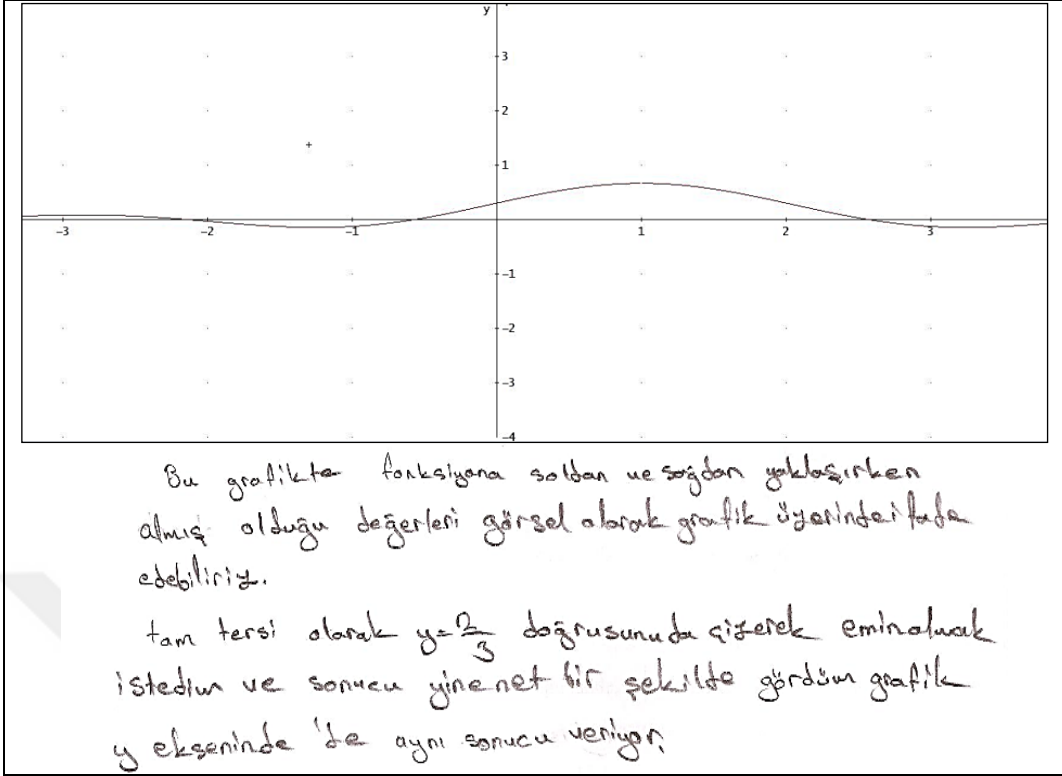 y
3
2
1
-3 -2 -1 1 2 3
-1
-2
-3
-4
Bu grafikte fonksiyona soldan ve sağdan yaklaşırken
almış olduğu değerleri görsel olarak grafik üzerinde ifade
edebiliriz.
tam tersi olarak y=2/3 doğrusunu da çizerek emin olmak
istedim ve sonucu yine net bir şekilde gördüm grafik
y ekseninde 'de aynı sonucu veriyor.